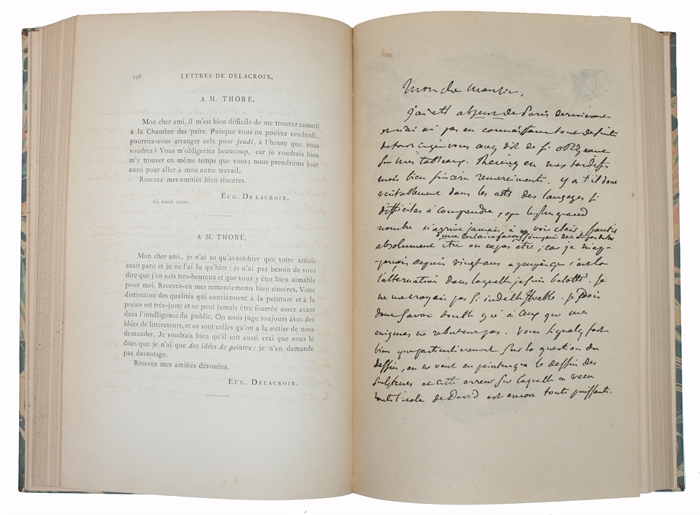 158 LETTRES DE DELACROIX.
A M. THORE.
Mon cher ami, il m'est bien difficile de me trouver samedi
à la Chambre des pairs. Puisque vous ne pouvez vendredi,
pourriez-vous arranger cela pour jeudi, à l'heure que vous
voudrez? Vous m'obligeriez beaucoup, car je voudrais bien
m'y trouver en même temps que vous; nous prendrions jour
aussi pour aller à mon autre travail.
Recevez mes amitiés bien sincères.
EUG. DELACROIX.
Ce mardi matin.
A M. THORE.
Mon cher ami, je n'ai su qu'avant-hier que votre article
avait paru et je ne l'ai lu qu'hier : je n'ai pas besoin de vous
dire que j'en suis très-heureux et que vous y êtes bien aimable
pour moi. Recevez-en mes remerciements bien sincères. Votre
distinction des qualités qui conviennent à la peinture et à la
poésie est très-juste et ne peut jamais être fourrée assez avant
dans l'intelligence du public. On nous juge toujours avec des
idées de littérateurs, et ce sont celles qu'on a la sottise de nous
demander. Je voudrais bien qu'il soit aussi vrai que vous le
dites que je n'ai que des idées de peintre; je n'en demande
pas davantage.
Recevez mes amitiés dévouées.
EUG. DELACROIX.
Mon cher Monsieur,
j'ai été absent de Paris dernièrement
et n'ai pas eu connaissance de suite
de l'article où vous avez dit de si obligeant
sur mes tableaux. mes tardifs
mais bien sincères remerciments. Y a t'il donc
véritablement dans les arts des langages si
difficiles à comprendre, que le plus grand
nombre n'arrive jamais à y voir clair
absolument
depuis vingt ans
l'alternative dans laquelle je suis balotté. Je
ne me croyais pas si indéchiffrable. Je dois
donc savoir double gré à ceux que mes
énigmes ne rebutent pas. Vous
bien particulièrement sur la question du
dessin, on ne veut en peinture que le dessin des
sculpteurs et cette erreur sur laquelle a vécu
toute l'école de David est encore toute puissante.